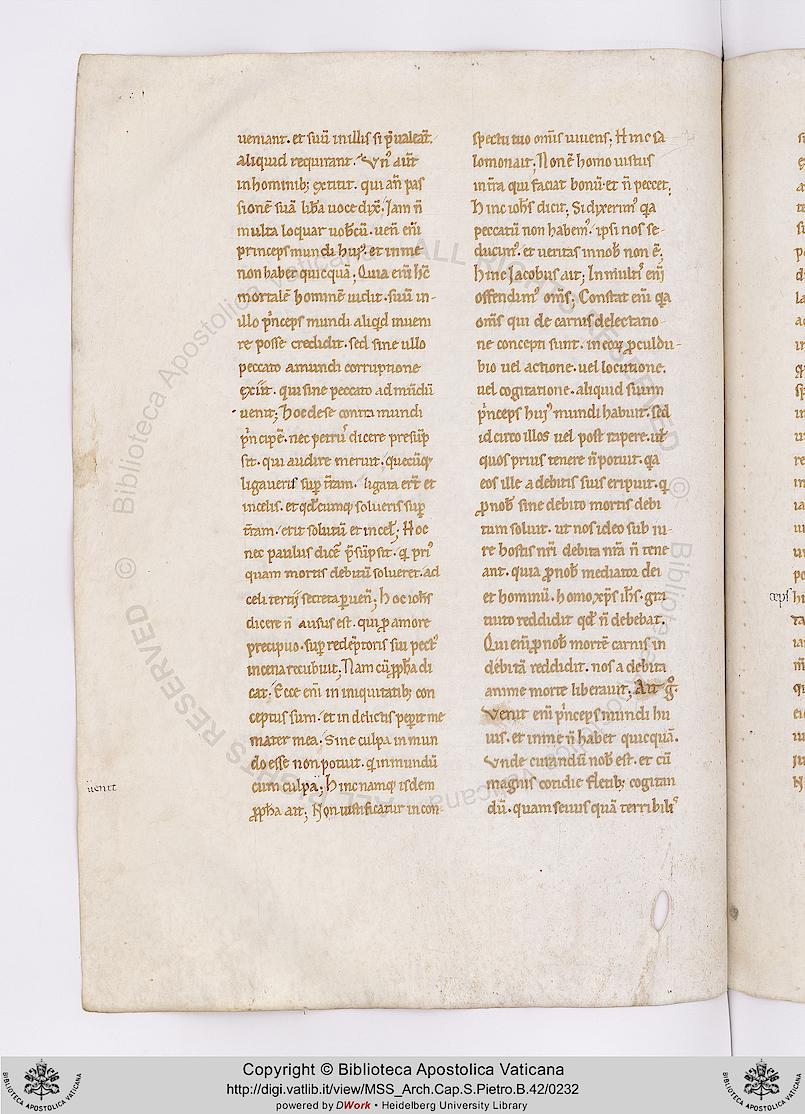 ueniant. et suū in illis si p̄ualeāt.
aliquid requirant. Vn᷒ aūt
in hominib; extitit. qui añ pas
sionē suā lib̄a uoce dix̄. Jam ñ
multa loquar uob̄cū. ueñ eñi
princeps mundi hui᷒. et in me
non habet quicquā; Quia eñi hc̄
mortalē hominē uidit. suū in
illo p̄nceps mundi aliq̄d inueni
re posse credidit. sed sine ullo
peccato a mundi corruptione
exiit. qui sine peccato ad mūdū
uenit; Hoc de se contra mundi
p̄ncipē. nec petrus dicere presūp
sit. qui audire meruit. quecūq;
ligaueris sup̄ t̄ram. ligata er̄t et
in celis. et qd̄cumq; solueris sup̄
t̄ram. erit solutū et in cel̄; Hoc
nec paulus dic̄e p̄sūpsit. q̄ pri᷒
quam mortis debitū solueret. ad
celi tertij secreta ꝑueñ; hoc ioh̄s
dicere ñ ausus est. qui ꝓ amore
precipuo. sup̄ redēptoris sui pect᷒
in cena recubuit; Nam cū ꝓph̄a di
cat. Ecce eñi in iniquitatib; con
ceptus sum. et in delictis peperit me
mater mea. Sine culpa in mun
do esse non potuit. q̄ in mundū
cum culpa uenit; Hinc namq; isdem
ꝓph̄a ait; Non iustificatur in con
spectu tuo om̄is uiuens; Hinc sa
lomon ait; Non ē homo iustus
in t̄ra qui faciat bonū. et ñ peccet;
Hinc ioh̄s dicit; Si dixerim᷒ q̄a
peccatū non habem᷒. ipsi nos se
ducim᷒. et ueritas in nob̄ non ē;
Hinc Jacobus ait; In multis eñi
offendim᷒ om̄s; Constat eñi q̄a
om̄s qui de carnis delectatio
ne concepti sunt. in eoꝝ ꝓculdu
bio uel actione. uel locutione.
uel cogitatione. aliquid suum
p̄nceps hui᷒ mundi habuit. sed
idcirco illos uel post rapere. uel
quos prius tenere ñ potuit. q̄a
eos ille a debitis suis eripuit. q̄
ꝓ nob̄ sine debito mortis debi
tum soluit. ut nos ideo sub iu
re hostis nr̄i debita nr̄a ñ tene
ant. quia ꝓ nob̄ mediator dei
et hominū. homo xp̄s ih̄s. gra
tuito reddidit qd̄ ñ debebat.
Qui eñi ꝓ nob̄ mortē carnis in
debitā reddidit. nos a debita
anime morte liberauit; Ait g̊.
Venit eñi p̄nceps mundi hu
ius. et in me ñ habet quicquā.
Vnde curandū nob̄ est. et cū
magnis cotidie fletib; cogitan
dū. quam seuus quā terribilis
uenit
Copyright © Biblioteca Apostolica Vaticana
http://digi.vatlib.it/view/MSS_Arch.Cap.S.Pietro.B.42/0232
powered by DWork • Heidelberg University Library